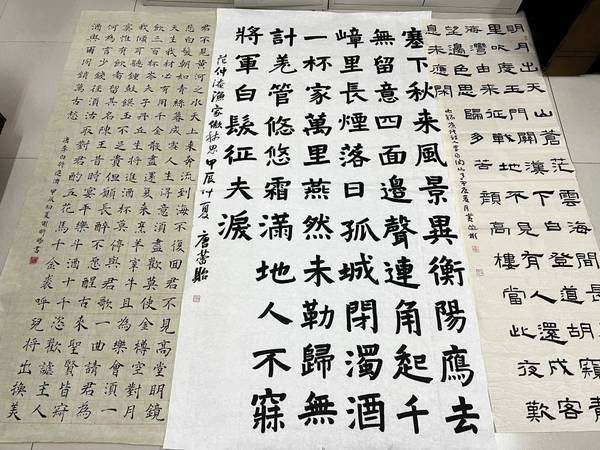 明月出天山蒼茫雲海間
里吹度玉門關漢下白登道胡窺青
海灣由来征戰地不見有人還戍客
望邊色思歸多苦顏高樓當此夜歎
息未應閑
塞下秋来風景異衡陽鴈去
無留意四面邊聲連角起千
嶂里長煙落日孤城閉濁酒
一杯家萬里燕然未勒歸無
計羌管悠悠霜滿地人不寐
將軍白髮征夫淚
范仲淹漁家傲秋思 甲辰仲夏 唐蕾貽
君不見黃河之水天上來奔流到海不復回君不見高堂明鏡
悲白髮朝如青絲暮成雪人生得意須盡歡莫使金樽空對月
天生我材必有用千金散盡還復來烹羊宰牛且為樂會須一
飲三百杯岑夫子丹丘生將進酒杯莫停與君歌一曲請君為
我傾耳聽鐘鼓饌玉不足貴但願長醉不願醒古來聖賢皆寂
寞惟有飲者留其名陳王昔時宴平樂斗酒十千恣歡謔主人
何為言少錢徑須沽取對君酌五花馬千金裘呼兒將出換美
酒與爾同銷萬古愁
唐李白將進酒 甲辰初夏